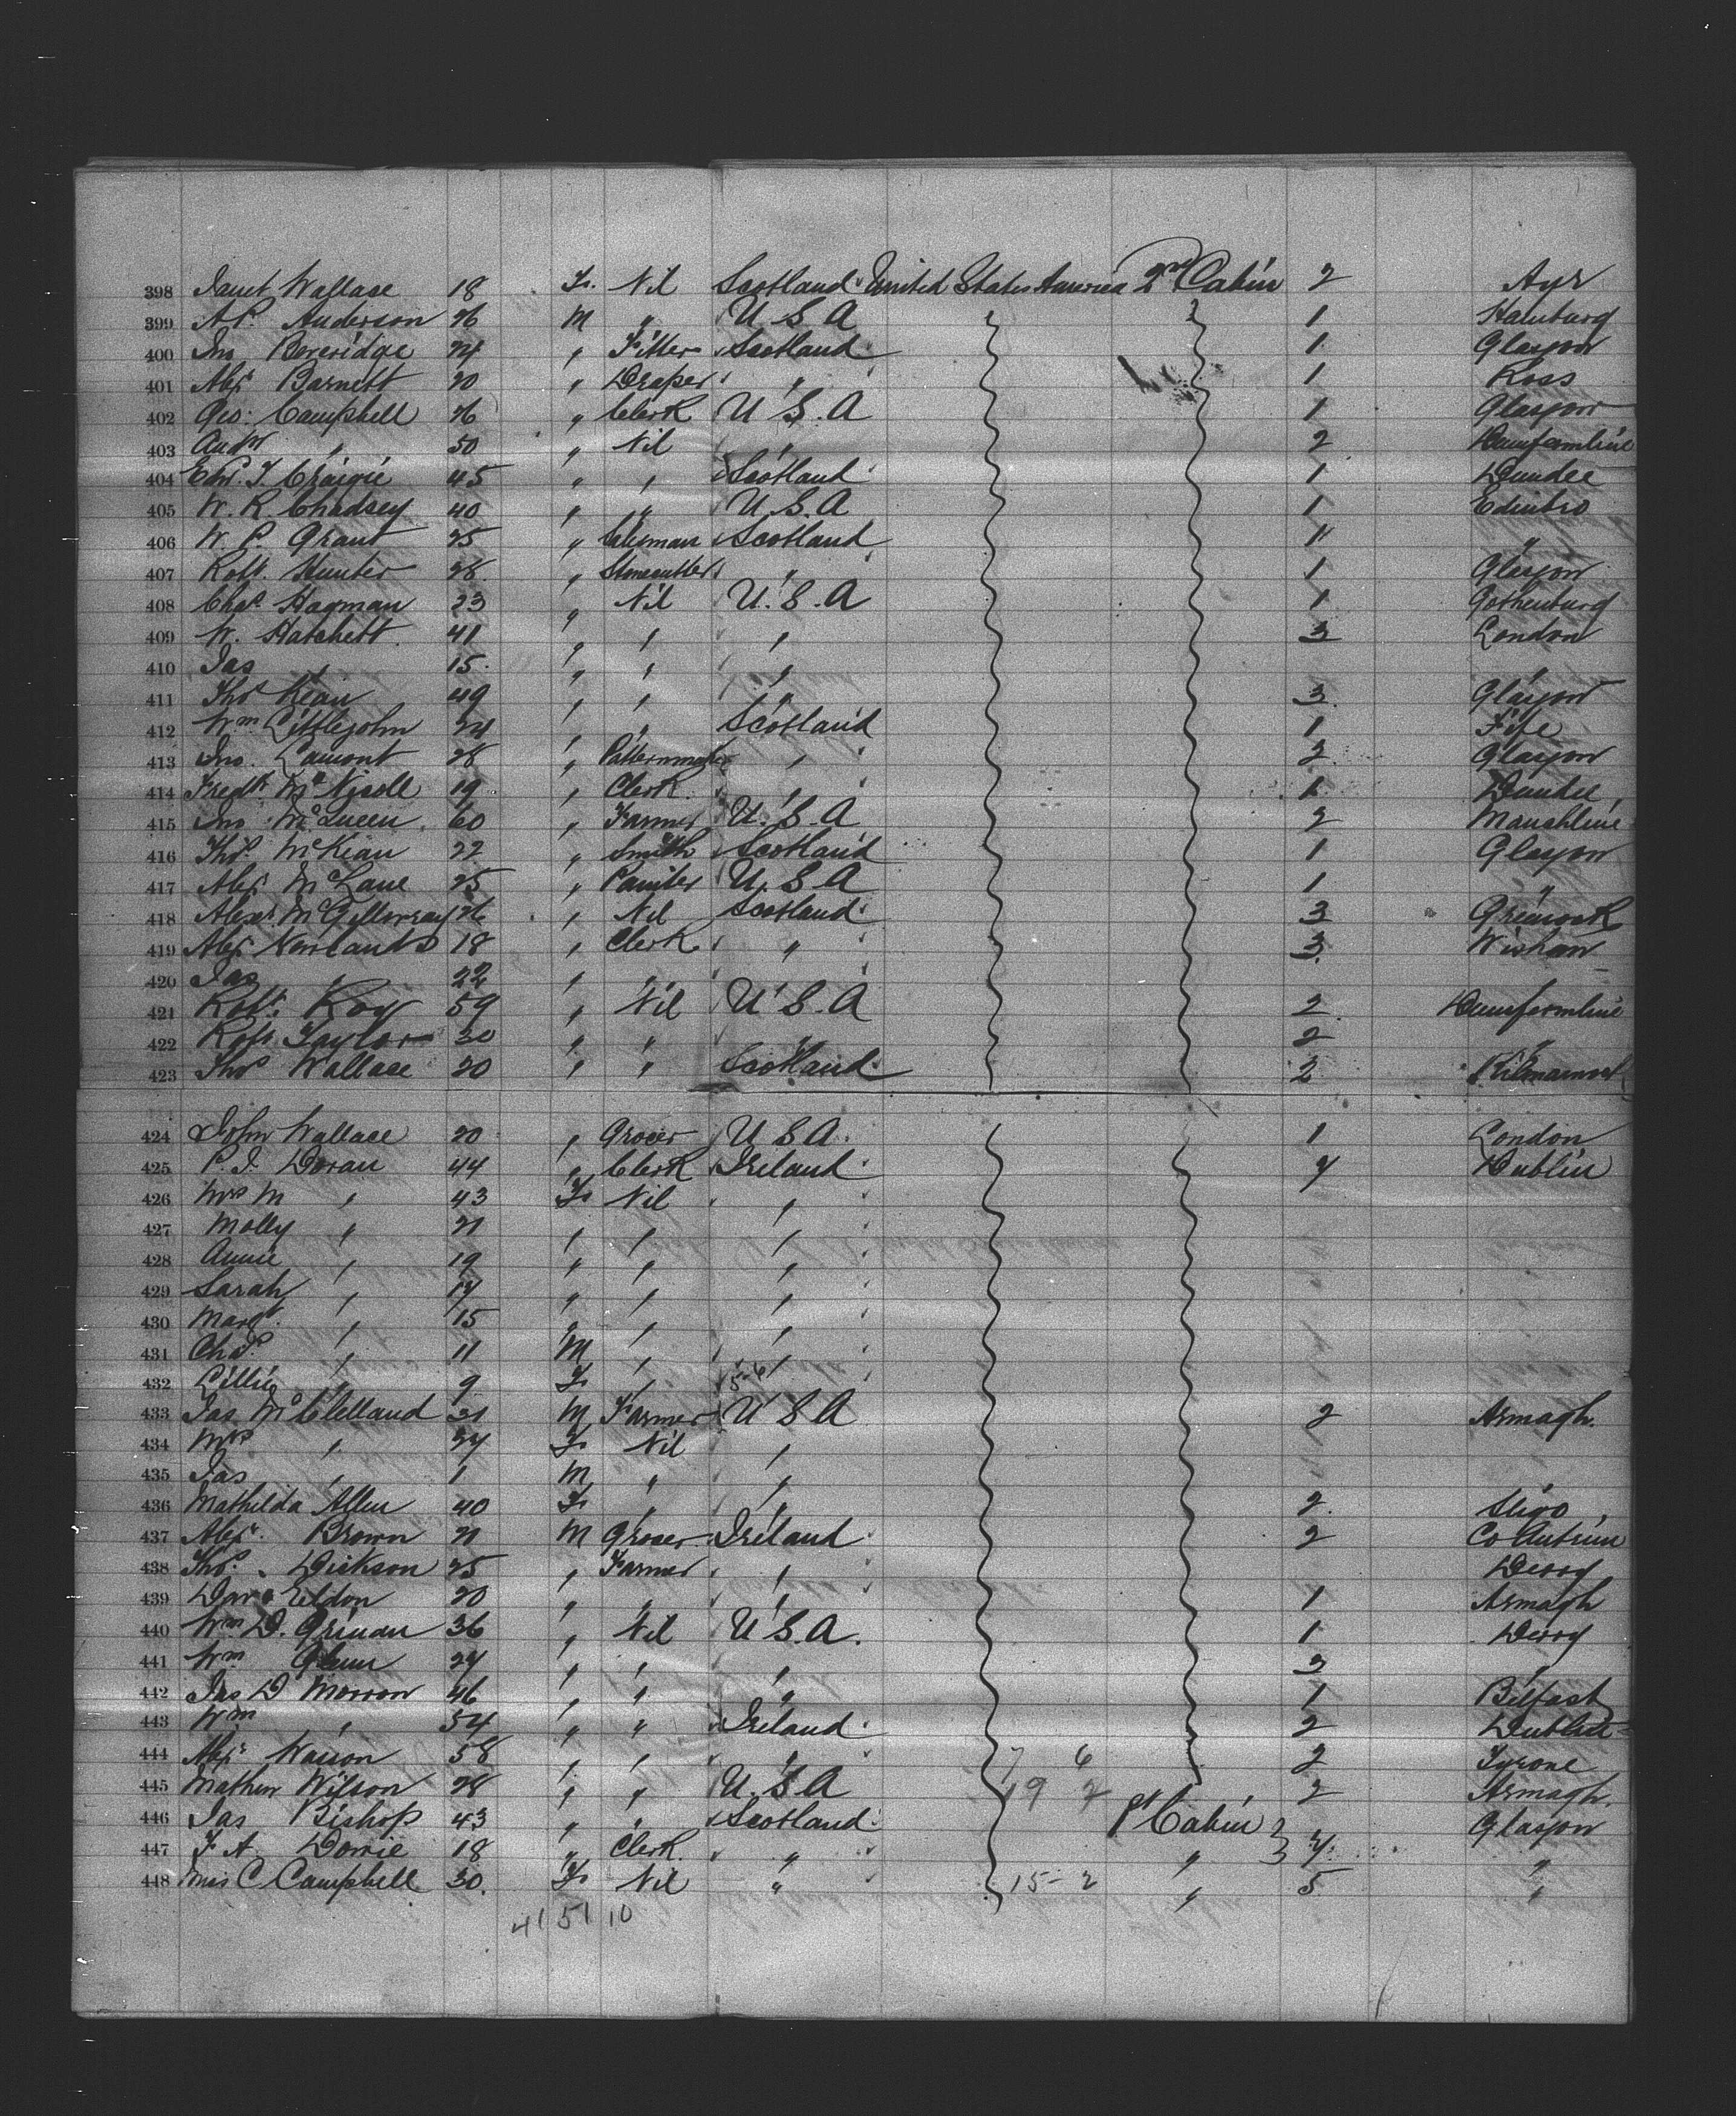 398 Janet Wallace 18 F. Nil Scotland United States America 2nd Cabin 2 Ayr
399 A.P. Anderson 26 M " U S A 1 Hamburg
400 Jno Beveridge 24 " Fitter Scotland 1 Glasgow
401 Alexr Barnett 20 " Draper " 1 Ross
402 Geo: Campbell 26 " Clerk U S. A 1 Glasgow
403 Andw " 50 " Nil " 2 Dunfermline
404 Edw. J. Craigie 45 " " Scotland 1 Dundee
405 W. R. Chadsey 40 " " U. S. A 1 Edinbro
406 W. P. Grant 25 " Salesman Scotland 1 "
407 Robt. Hunter 28. " Stonecutter " 1 Glasgow
408 Chas. Hagman 23 " Nil U. S. A 1 Gothenburg
409 W. Hatchett. 41 " " " 3 London
410 Jas " 15. " " " "
411 Thos Kean 49 " " " 3. Glasgow
412 Wm Littlejohn 24 " " Scotland 1 Fife
413 Jno. Lamont 28 " Patternmaker " 2 Glasgow
414 Fredk McNicoll 19 " Clerk. " 1. Dundee
415 Jno McQueen 60 " Farmer U. S. A 2 Mauchline
416 Thos. McKean 22 " Smith Scotland 1 Glasgow
417 Alexr McLane 25 " Painter U. S. A 1 "
418 Alexr. McGillivray 26 " Nil Scotland 3 Greenock
419 Alexr Newlands 18 " Clerk " 3. Wishaw
420 Jas " 22 " " "
421 Robt. Roy 59 " Nil U S. A 2 Dunfermline
422 Robt Taylor 30 " " " 2 "
423 Thos Wallace 20 " " Scotland 2 Kilmarnock
424 John Wallace 20 " Grocer U S A. 1 London
425 P. J. Doran 44 " Clerk Ireland 7 Dublin
426 Mrs M " 43 F Nil "
427 Molly " 21 " " "
428 Annie " 19 " " "
429 Sarah " 17 " " "
430 Margt. " 15 " " "
431 Chas. " 11 M " "
432 Lillie " 9 F " " 5-6
433 Jas McClelland 31 M Farmer U S A 2 Armagh.
434 Mrs " 27 F Nil "
435 Jas " 1 M " "
436 Mathilda Allen 40 F " " 2. Sligo
437 Alexr. Brown 21 M Grocer Ireland 2 Co Antrim
438 Thos. Dickson 25 " Farmer " Derry
439 Davd Eldon 20 " " " 1 Armagh
440 Wm D. Grinan 36 " Nil U S. A. 1 Derry
441 Wm Glenn 24 " " " 3 "
442 Jas D Morrow 46 " " " 1 Belfast
443 Wm " 54 " " Ireland 2 Dublin
444 Alexr Wasson 58 " " " 7 6 2 Tyrone
445 Mathew Wilson 28 " " U. S. A 19 2 2 Armagh.
446 Jas Bishop 43 " " Scotland 1st Cabin Glasgow
447 F. A. Dowie 18 " Clerk. " " 7. "
448 Miss C Campbell 30. F Nil " 15-2 " 5 "
41 51 10